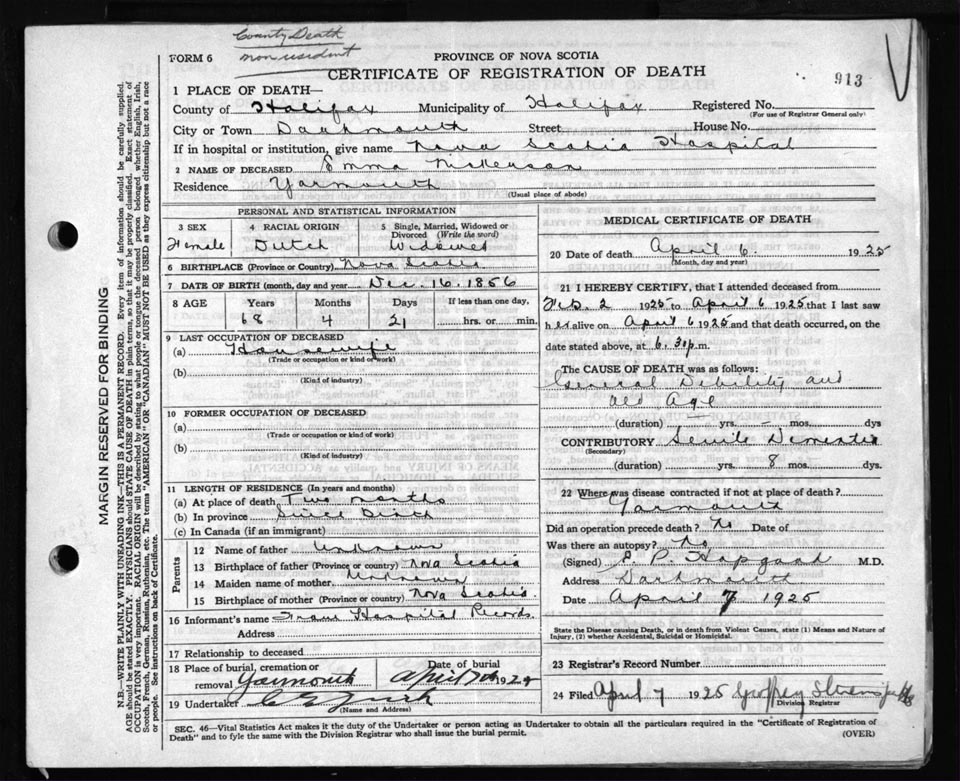 County Death
non resident
FORM 6
PROVINCE OF NOVA SCOTIA
CERTIFICATE OF REGISTRATION OF DEATH
913
1 PLACE OF DEATH—
County of Halifax Municipality of Halifax Registered No.
(For use of Registrar General only)
City or Town Dartmouth Street House No.
If in hospital or institution, give name Nova Scotia Hospital
2 NAME OF DECEASED Emma Nickerson
Residence Yarmouth
(Usual place of abode)
PERSONAL AND STATISTICAL INFORMATION
3 SEX 4 RACIAL ORIGIN 5 Single, Married, Widowed or Divorced (Write the word)
Female Dutch Widowed
6 BIRTHPLACE (Province or Country) Nova Scotia
7 DATE OF BIRTH (month, day and year) Dec. 16. 1856
8 AGE Years Months Days If less than one day,
68 4 21 hrs. or min.
9 LAST OCCUPATION OF DECEASED
(a) Housewife
(Trade or occupation or kind of work)
(b)
(Kind of industry)
10 FORMER OCCUPATION OF DECEASED
(Trade or occupation or kind of work)
(Kind of industry)
11 LENGTH OF RESIDENCE (In years and months)
(a) At place of death Two months
(b) In province Since Death
(c) In Canada (if an immigrant)
Parents
12 Name of father Unknown
13 Birthplace of father (Province or country) Nova Scotia
14 Maiden name of mother Unknown
15 Birthplace of mother (Province or country) Nova Scotia.
16 Informant's name From Hospital Records.
Address
17 Relationship to deceased
18 Place of burial, cremation or removal Yarmouth Date of burial April 1925
19 Undertaker
(Name and Address)
MEDICAL CERTIFICATE OF DEATH
20 Date of death April 6. 1925
(Month, day and year)
21 I HEREBY CERTIFY, that I attended deceased from
Feb. 2 1925 to April 6 1925 that I last saw
her alive on April 6 1925 and that death occurred, on the
date stated above, at 6.30 p.m.
The CAUSE OF DEATH was as follows:
General Debility and
Old Age
(duration) yrs. mos. dys
CONTRIBUTORY Senile Dementia
(Secondary)
(duration) yrs. 8 mos. dys.
22 Where was disease contracted if not at place of death?
Yarmouth
Did an operation precede death? No Date of
Was there an autopsy? No
(Signed) Hopgood M.D.
Address Dartmouth
Date April 7 1925
State the Disease causing Death, or in death from Violent Causes, state (1) Means and Nature of Injury, (2) whether Accidental, Suicidal or Homicidal.
23 Registrar's Record Number
24 Filed April 7 1925 Geoffrey Stevens
Division Registrar
SEC. 46—Vital Statistics Act makes it the duty of the Undertaker or person acting as Undertaker to obtain all the particulars required in the "Certificate of Registration of
Death" and to fyle the same with the Division Registrar who shall issue the burial permit.
(OVER)
MARGIN RESERVED FOR BINDING
N.B.—WRITE PLAINLY WITH UNFADING INK—THIS IS A PERMANENT RECORD. Every item of information should be carefully supplied.
AGE should be stated EXACTLY. PHYSICIANS should STATE CAUSE OF DEATH in plain terms, so that it may be properly classified. Exact statement of
OCCUPATION is very important. RACIAL ORIGIN will be described by stating to what people or tongue the deceased person belonged whether English, Irish,
Scotch, French, German, Russian, Ruthenian, etc. The terms "AMERICAN" or "CANADIAN" MUST NOT BE USED as they express citizenship but not a race
or people. See instructions on back of Certificate.